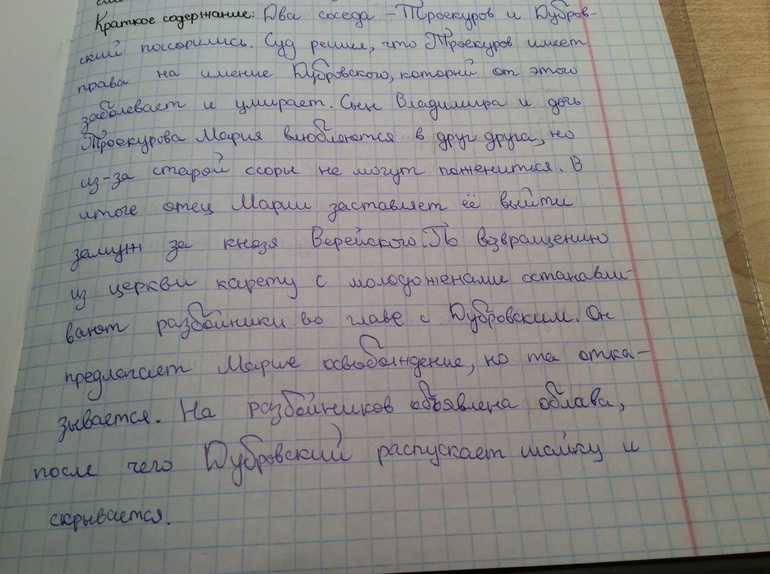 Краткое содержание: Два соседа – Троекуров и Дубров-
ский поссорились. Суд решил, что Троекуров имеет
права на имение Дубровского, который от этого
заболевает и умирает. Сын Владимира и дочь
Троекурова Мария влюбляются в друг друга, но
из-за старой ссоры не могут пожениться. В
итоге отец Марии заставляет её выйти
замуж за князя Верейского. По возвращению
из церкви карету с молодоженами останавли-
вают разбойники во главе с Дубровским. Он
предлагает Марие освобождение, но та отка-
зывается. На разбойников объявлена облава,
после чего Дубровский распускает шайку и
скрывается.